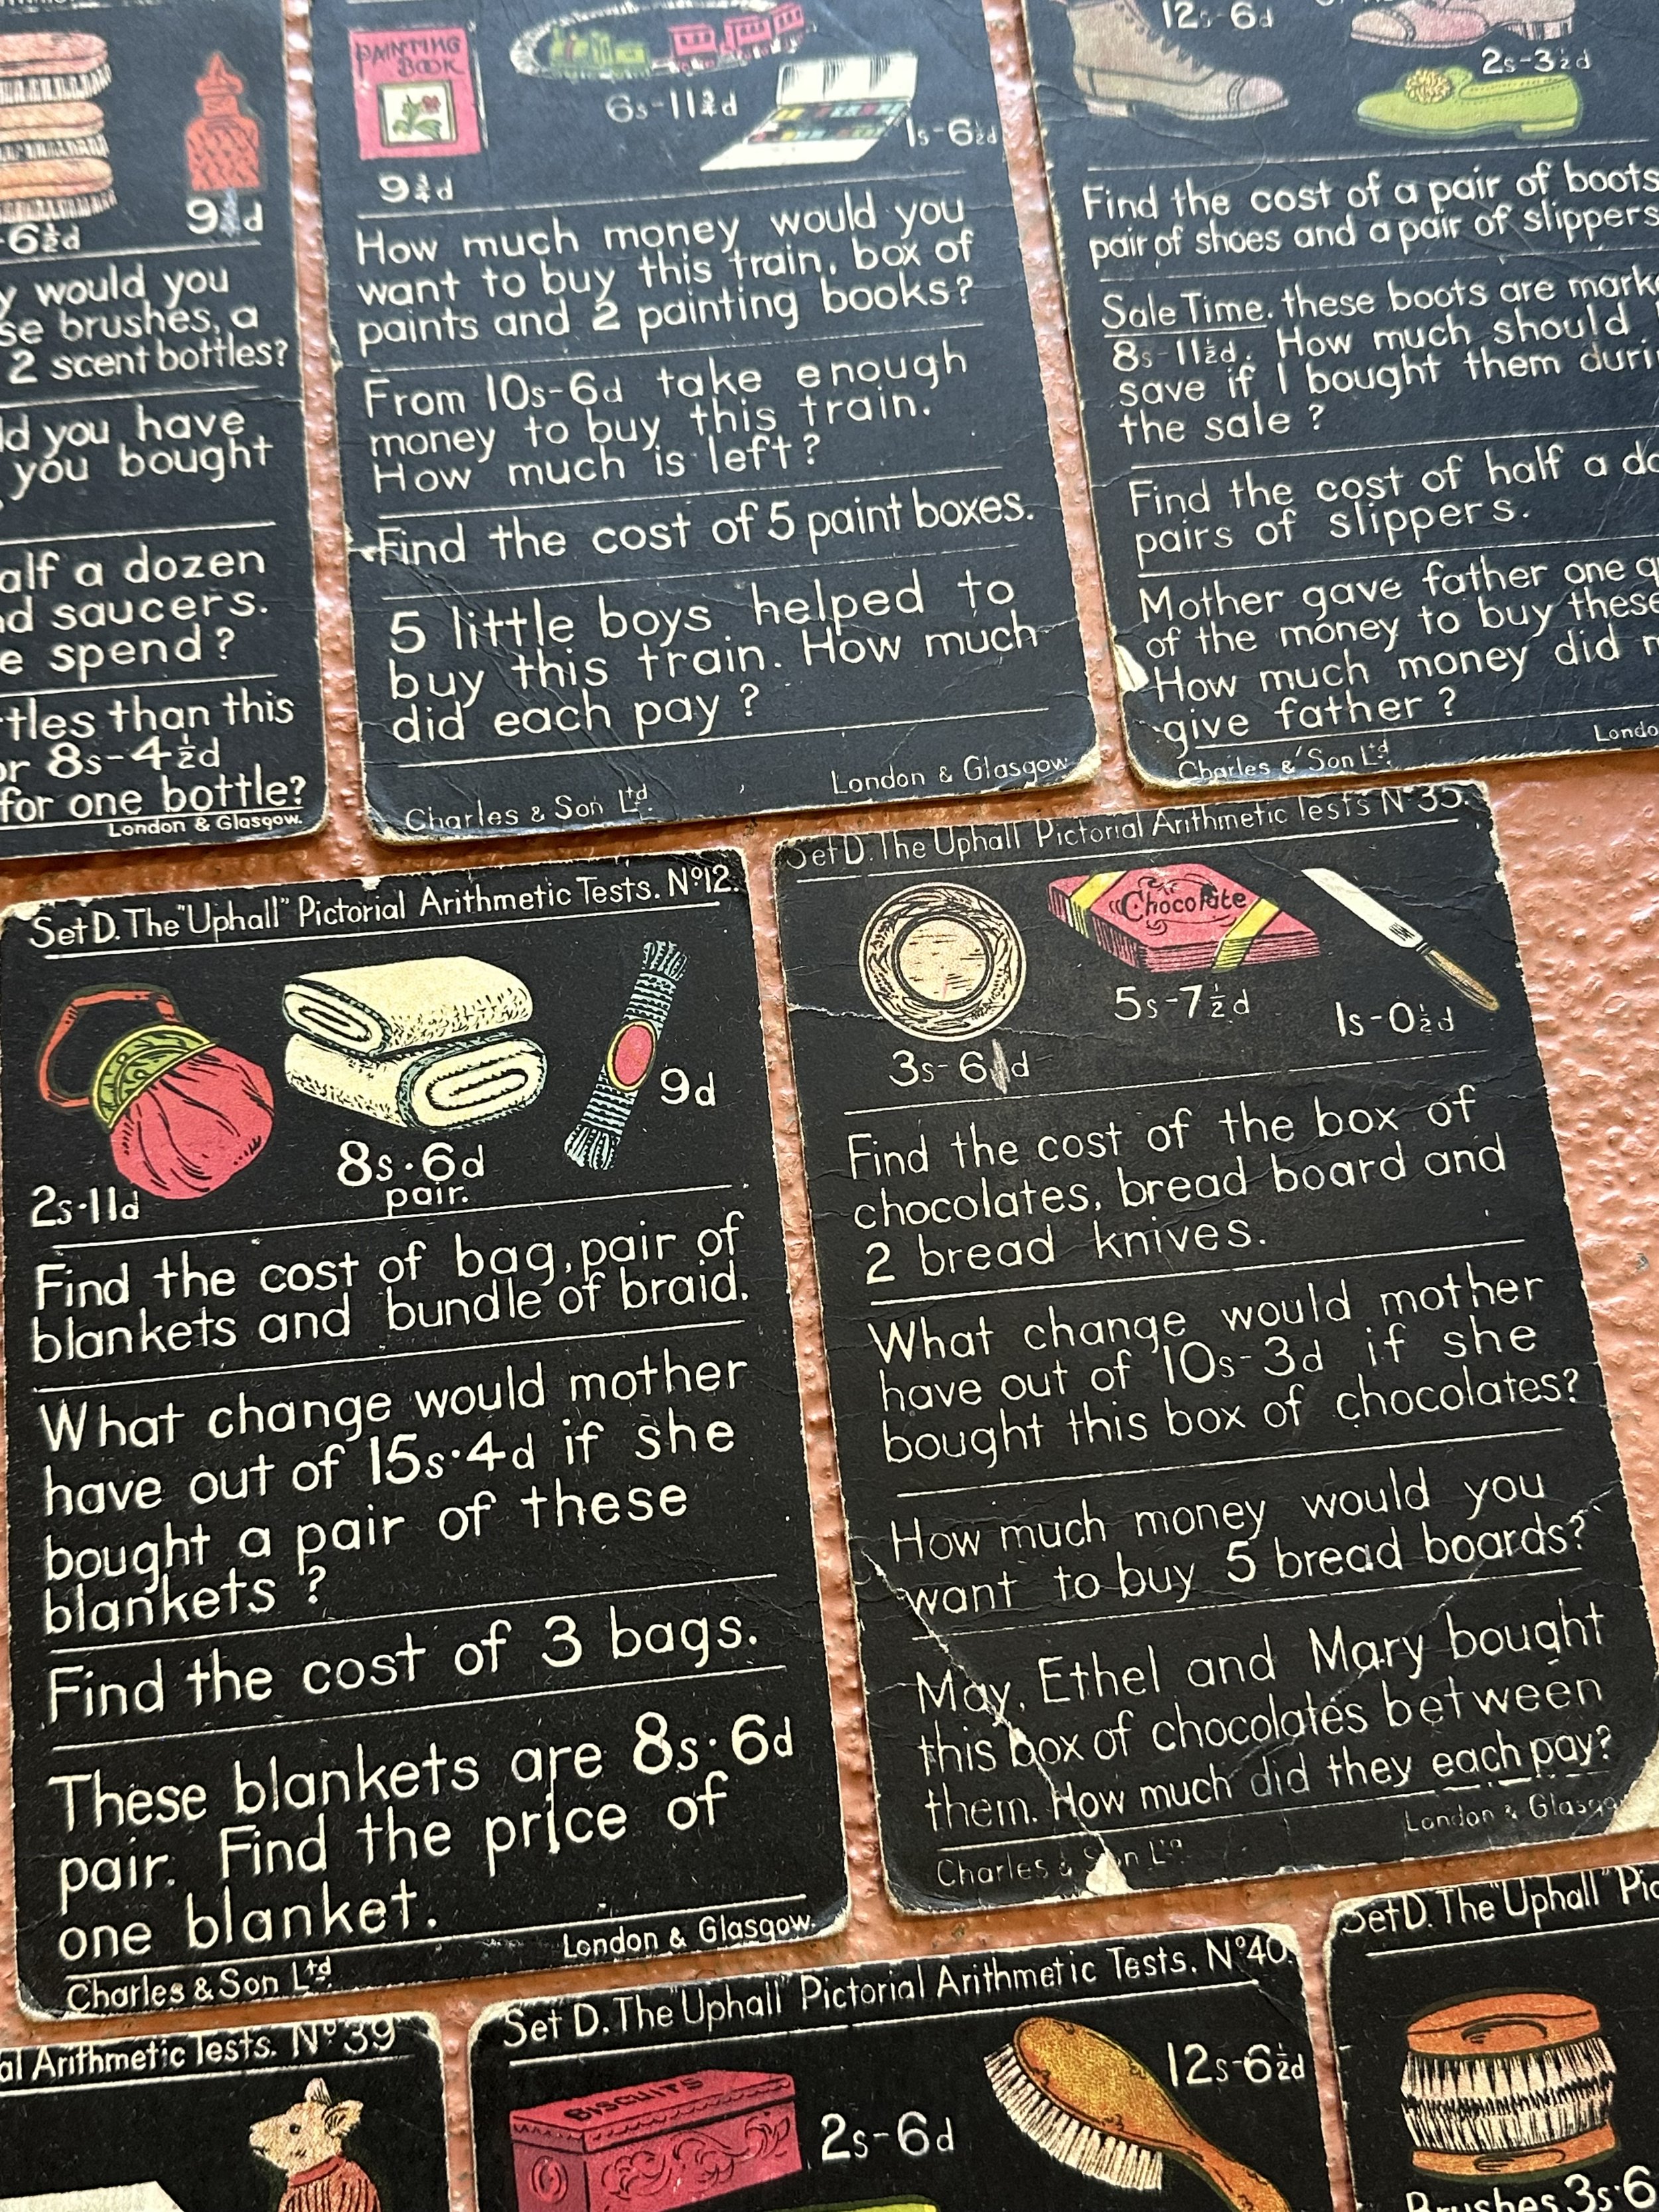 6½d
9 d
y would you
se brushes, a
2 scent bottles?
ld you have
you bought
alf a dozen
nd saucers.
e spend?
tles than this
or 8s-4½d
for one bottle?
London & Glasgow.
PAINTING
BOOK
6s-11¾d
1s-6½d
9¾d
How much money would you
want to buy this train, box of
paints and 2 painting books?
From 10s-6d take enough
money to buy this train.
How much is left?
Find the cost of 5 paint boxes.
5 little boys helped to
buy this train. How much
did each pay?
Charles & Son Ltd.
London & Glasgow
12s-6d
2s-3½d
Find the cost of a pair of boots
pair of shoes and a pair of slippers
Sale Time. these boots are mark
8s-11½d. How much should
save if I bought them duri
the sale?
Find the cost of half a do
pairs of slippers.
Mother gave father one q
of the money to buy these
How much money did m
give father?
Charles & Son Ltd.
Londo
Set D. The "Uphall" Pictorial Arithmetic Tests. No 12.
2s·11d
8s·6d
pair.
9d
Find the cost of bag, pair of
blankets and bundle of braid.
What change would mother
have out of 15s·4d if she
bought a pair of these
blankets?
Find the cost of 3 bags.
These blankets are 8s·6d
pair. Find the price of
one blanket.
Charles & Son Ltd
London & Glasgow.
Set D. The Uphall Pictorial Arithmetic Tests No 35.
Chocolate
5s-7½d
1s-0½d
3s-6 d
Find the cost of the box of
chocolates, bread board and
2 bread knives.
What change would mother
have out of 10s-3d if she
bought this box of chocolates?
How much money would you
want to buy 5 bread boards?
May, Ethel and Mary bought
this box of chocolates between
them. How much did they each pay?
Charles & Son Ltd
London & Glasgow
al Arithmetic Tests. No 39
Set D. The "Uphall" Pictorial Arithmetic Tests. No 40.
BISCUITS
2s-6d
12s-6½d
Set D. The "Uphall" Pic
Brushes 3s·6